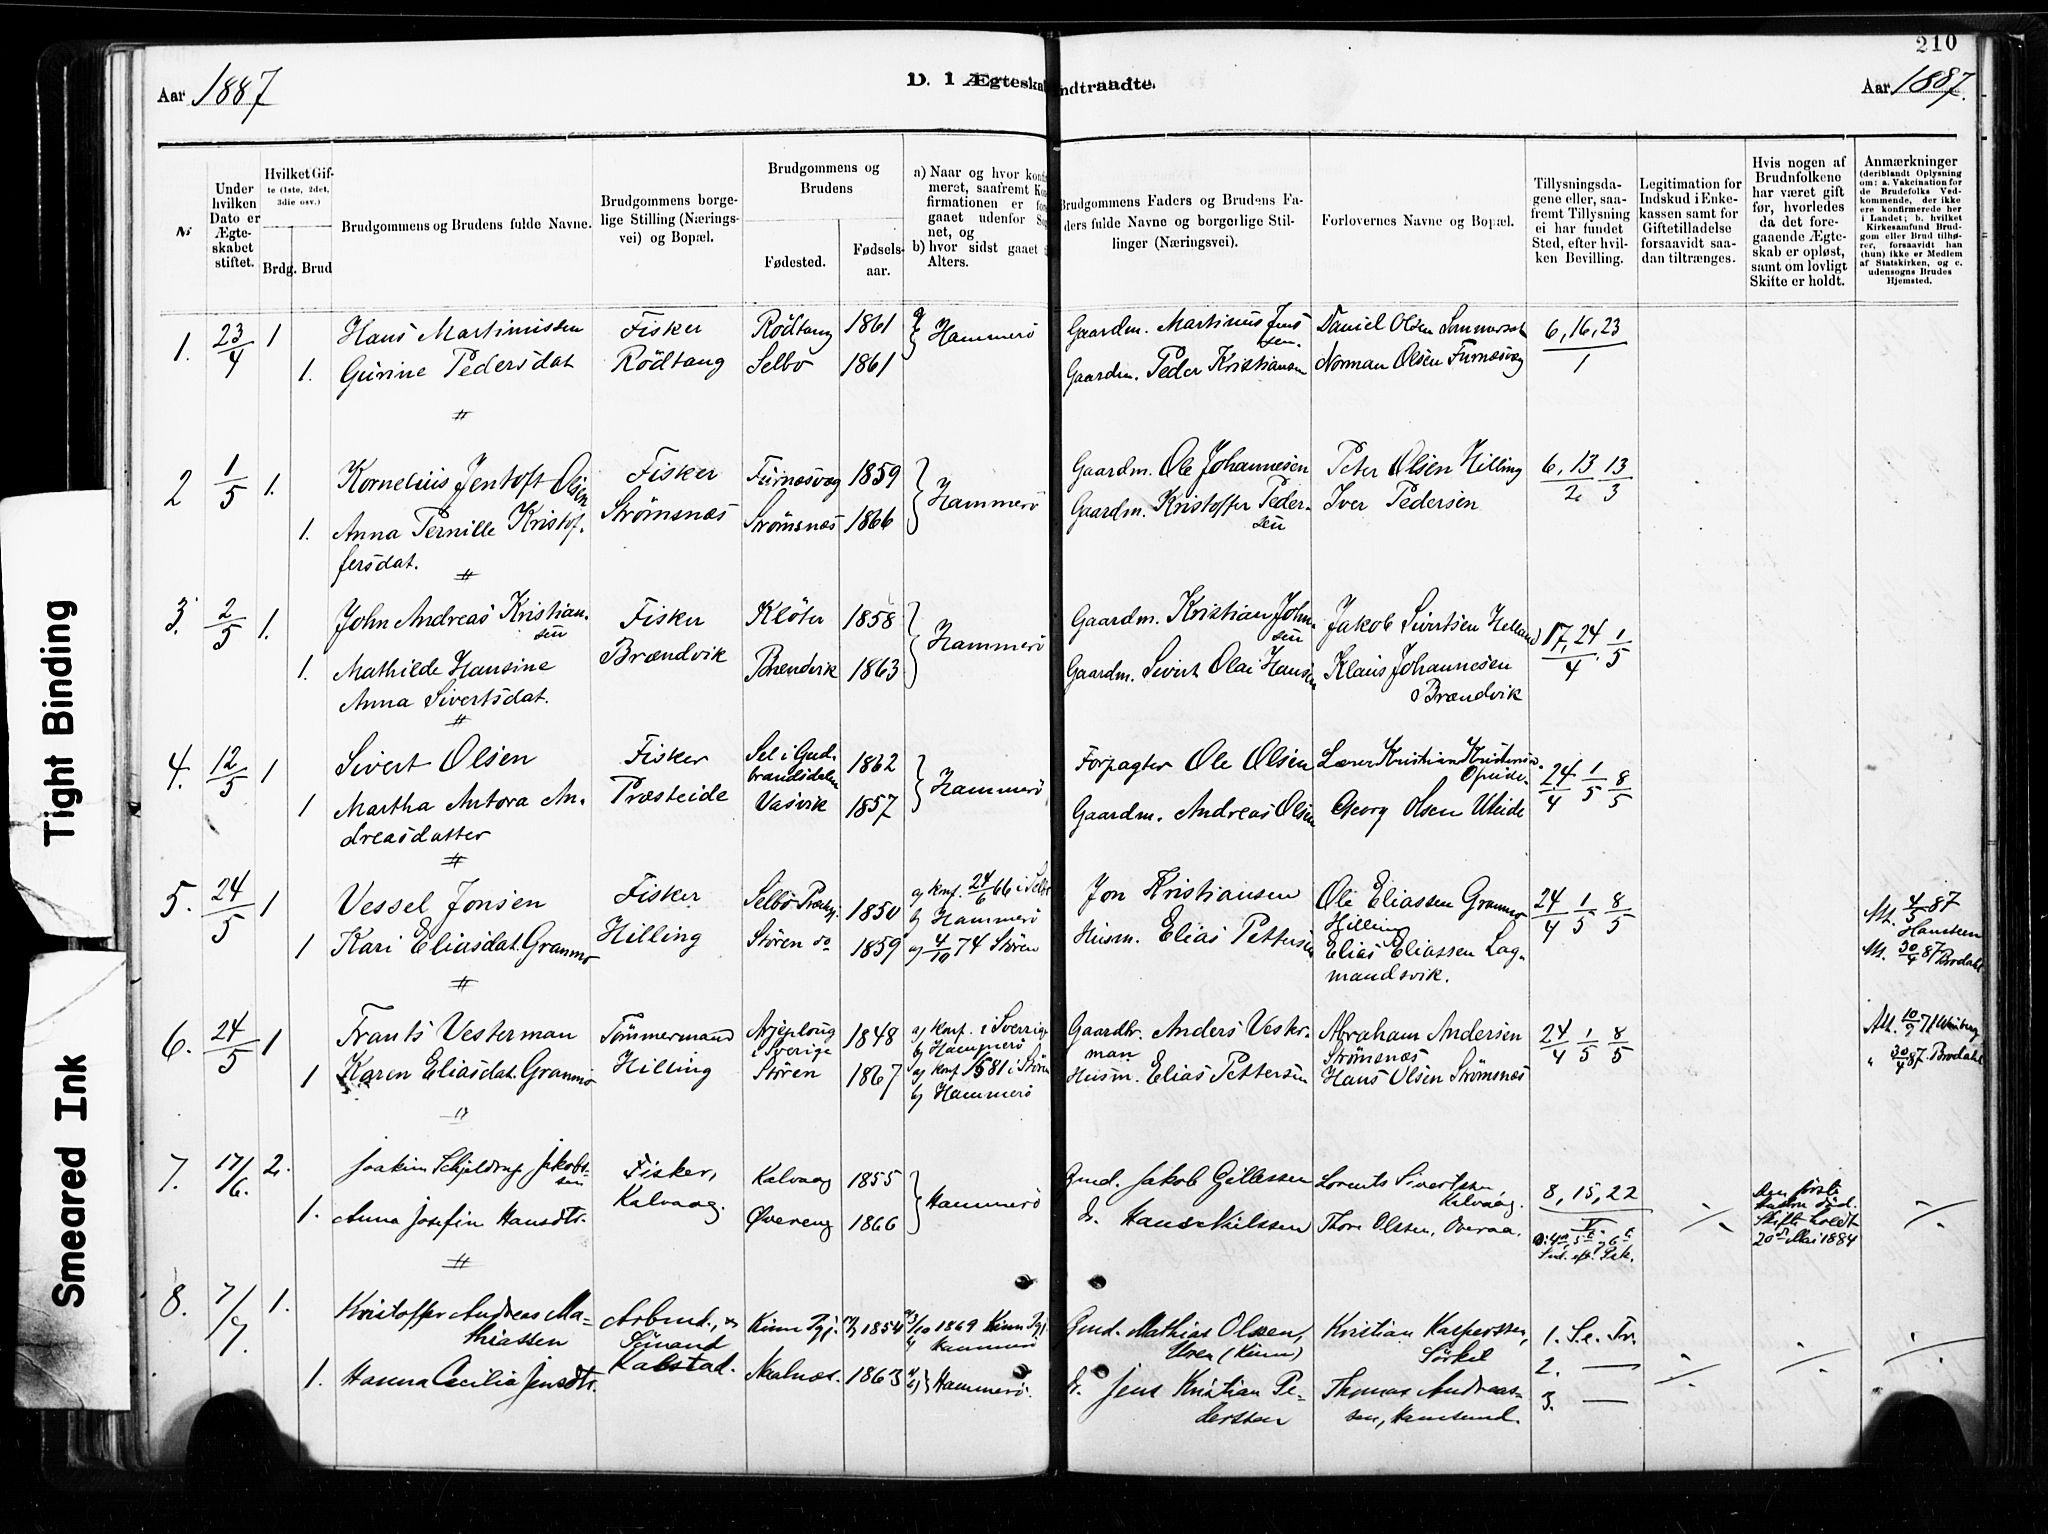 210
Aar 1887
D. 1 Ægteskab indtraadte.
Aar 1887.
No
Under hvilken Dato er Ægteskabet stiftet.
Hvilket Gifte (1ste, 2det, 3die osv.)
Brdg. Brud
Brudgommens og Brudens fulde Navne.
Brudgommens borgelige Stilling (Næringsvei) og Bopæl.
Brudgommens og Brudens
Fødested.
Fødselsaar.
a) Naar og hvor
b) hvor sidst gaaet
Alters.
Brudgommens Faders og Brudens Faders fulde Navne og borgerlige Stillinger (Næringsvei).
Forlovernes Navne og Bopæl.
Tillysningsdagene eller, saafremt Tillysning ei har fundet Sted, efter hvilken Bevilling.
Legitimation for Indskud i Enkekassen samt for Giftetilladelse forsaavidt saadan tiltrænges.
Hvis nogen af Brudnfolkene har været gift før, hvorledes da det foregaaende Ægteskab er opløst, samt om lovligt Skifte er holdt.
Anmærkninger (deriblandt Oplysning om: a. Vakcination for de Brudefolks Vedkommende, der ikke ere konfirmerede her i Landet; b. hvilket Kirkesamfund Brudgom eller Brud tilhører, forsaavidt han (hun) ikke er Medlem af Statskirken, og c. udensogns Brudes Hjemsted.
1. 23/4 1 Hans Martinussen Fisker Rödtang 1861 Hammerö Gaardm. Martinus Jenssen. Daniel Olsen Sommerset 6, 16, 23
1. Gurine Pedersdat Rödtang Selbo 1861 Gaardm. Peder Kristiansen Norman Olsen Furnæsvag 1
2 1/5 1. Kornelius Jentoft Olsen Fisker Furnæsvag 1859 Hammerö Gaardm. Ole Johannesen Peter Olsen Hilling 6, 13/2 13/3
1. Anna Pernille Kristoffersdat. Strømsnæs Strømsnæs 1866 Gaardm. Kristoffer Pedersen Iver Pedersen
3. 2/5 1. John Andreas Kristiansen Fisker Klöter 1858 Hammerö Gaardm. Kristian Johnsen Jakob Sivertsen Helland 17, 24/4. 1/5
1. Mathilde Hansine Anna Sivertsdat. Brændvik Brændvik 1863 Gaardm. Sivert Olai Hansen Klaus Johannesen Brændvik
4. 12/5 1 Sivert Olsen Fisker Sel i Gudbrandsdalen 1862 Hammerö Forpagter Ole Olsen Lærer Kristian 24/4 1/5 8/5
1 Martha Antora Andreasdatter Præsteide Vasvik 1857 Gaardm. Andreas Olsen Georg Olsen Uteide
5. 24/5 1 Vessel Jonsen Fisker Selbo Præstgj. 1850 a) konf. 24/6 66 i Selbo b) Hammerö Jon Kristiansen Ole Eliassen Granmo Hilling 24/4 1/5 8/5 Att. 4/5 87 Hansteen
1 Kari Eliasdat. Granmo Hilling Stören do 1859 a) 4/10 74 Stören Husm. Elias Pettersen Elias Eliassen Lagmandsvik. Att. 30/4 87 Brodahl
6. 24/5 1 Frants Vesterman Tömmermand Arjeploug i Sverige 1848 a) Konf. i Sverrige b) Hammerö Gaardbr. Anders Vesterman Abraham Andersen Strömsnæs 24/4 1/5 8/5 Att. 10/9 71
1 Karen Eliasdat. Granmo Hilling Stören 1867 a) konf. 81 i Stören b) Hammerö Husm. Elias Pettersen Hans Olsen Strömsnæs " 30/4 87. Brodahl
7. 17/6. 2. Joakim Schjeldrup Jakobssen Fisker, Kalvaag 1855 Hammerö Gmd. Jakob Gillessen Lorents Sivertssen Kalvaag. 8, 15, 22 Den förste Hustru död. Skifte holdt 20de Mai 1884
1. Anna Josefin Hansdtr. Kalvaag. Övereng 1866 Hans Nilssen Thore Olssen, Overaa.
8. 7/7. 1. Kristoffer Andreas Mathiassen Arbmd., Sömand Kinn Pgj. 1854 1869 Kinn Pgj. Hammerö Gmd. Mathias Olssen, Uren (Kinn) Kristian Kasperssen, 1. S. e. Tr.
1. Hanna Cecilia Jensdtr. Kalstad. 1863 Hammerö. Jens Kristian Pederssen Thomas Andreassen, Hamsund. 2. —
3. —
Tight Binding
Smeared Ink